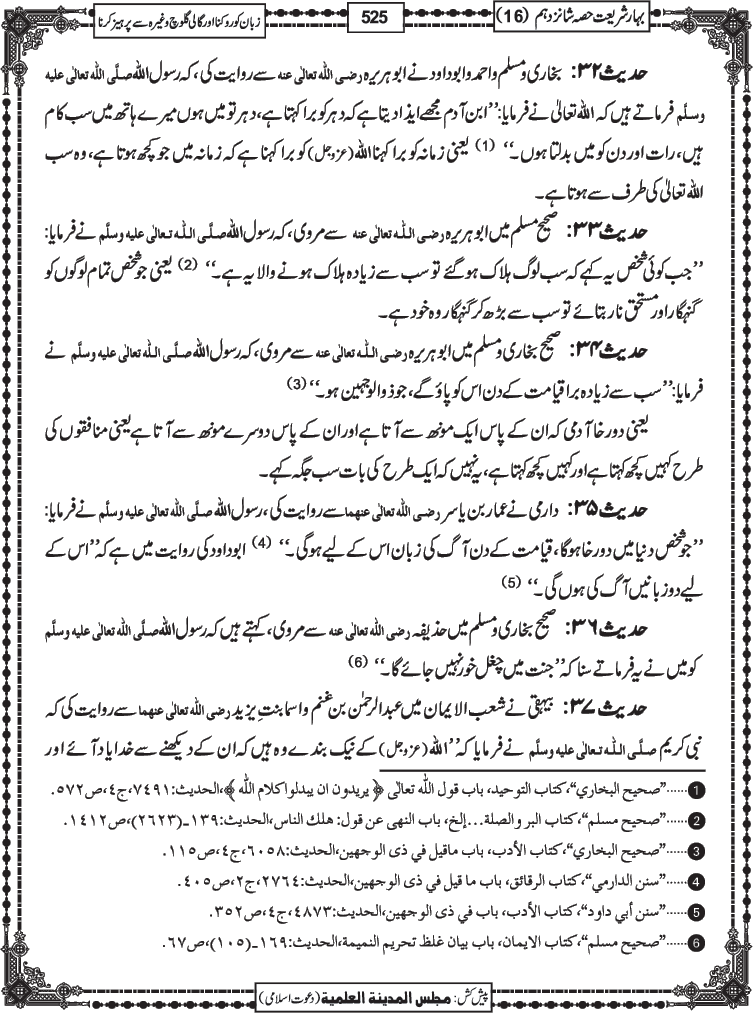 بہار شریعت حصہ شانزدہم (16)
525
زبان کو روکنا اور گالی گلوچ وغیرہ سے پرہیز کرنا
حدیث ۳۲: بخاری و مسلم و احمد و ابوداود نے ابو ہریرہ رضی اللہ تعالٰی عنہ سے روایت کی، کہ رسول اللہ صلَّی اللہ تعالٰی علیہ
وسلَّم فرماتے ہیں کہ اللہ تعالٰی نے فرمایا: ’’ابن آدم مجھے ایذا دیتا ہے کہ دہر کو برا کہتا ہے، دہر تو میں ہوں میرے ہاتھ میں سب کام
ہیں، رات اور دن کو میں بدلتا ہوں۔‘‘ (1) یعنی زمانہ کو برا کہنا اللہ (عزوجل) کو برا کہنا ہے کہ زمانہ میں جو کچھ ہوتا ہے، وہ سب
اللہ تعالٰی کی طرف سے ہوتا ہے۔
حدیث ۳۳: صحیح مسلم میں ابو ہریرہ رضی اللہ تعالٰی عنہ سے مروی، کہ رسول اللہ صلَّی اللہ تعالٰی علیہ وسلَّم نے فرمایا:
’’جب کوئی شخص یہ کہے کہ سب لوگ ہلاک ہوگئے تو سب سے زیادہ ہلاک ہونے والا یہ ہے۔‘‘ (2) یعنی جو شخص تمام لوگوں کو
گنہگار اور مستحق نار بتائے تو سب سے بڑھ کر گنہگار وہ خود ہے۔
حدیث ۳۴: صحیح بخاری و مسلم میں ابو ہریرہ رضی اللہ تعالٰی عنہ سے مروی، کہ رسول اللہ صلَّی اللہ تعالٰی علیہ وسلَّم نے
فرمایا: ’’سب سے زیادہ برا قیامت کے دن اس کو پاؤ گے، جو ذوالوجہین ہو۔‘‘ (3)
یعنی دورخا آدمی کہ ان کے پاس ایک مونھ سے آتا ہے اور ان کے پاس دوسرے مونھ سے آتا ہے یعنی منافقوں کی
طرح کہیں کچھ کہتا ہے اور کہیں کچھ کہتا ہے، یہ نہیں کہ ایک طرح کی بات سب جگہ کہے۔
حدیث ۳۵: دارمی نے عمار بن یاسر رضی اللہ تعالٰی عنہما سے روایت کی، رسول اللہ صلَّی اللہ تعالٰی علیہ وسلَّم نے فرمایا:
’’جو شخص دنیا میں دورخا ہوگا، قیامت کے دن آگ کی زبان اس کے لیے ہوگی۔‘‘ (4) ابوداود کی روایت میں ہے کہ ’’اس کے
لیے دو زبانیں آگ کی ہوں گی۔‘‘ (5)
حدیث ۳۶: صحیح بخاری و مسلم میں حذیفہ رضی اللہ تعالٰی عنہ سے مروی، کہتے ہیں کہ رسول اللہ صلَّی اللہ تعالٰی علیہ وسلَّم
کو میں نے یہ فرماتے سنا کہ ’’جنت میں چغل خور نہیں جائے گا۔‘‘ (6)
حدیث ۳۷: بیہقی نے شعب الایمان میں عبدالرحمٰن بن غنم و اسما بنتِ یزید رضی اللہ تعالٰی عنہما سے روایت کی کہ
نبی کریم صلَّی اللہ تعالٰی علیہ وسلَّم نے فرمایا کہ ’’اللہ (عزوجل) کے نیک بندے وہ ہیں کہ ان کے دیکھنے سے خدا یاد آئے اور
1 ......”صحیح البخاري“، کتاب التوحید، باب قول اللّٰہ تعالٰی ﴿ یریدون ان یبدلوا کلام اللّٰہ ﴾، الحدیث: ٧٤٩١، ج٤، ص٥٧٢.
2 ......”صحیح مسلم“، کتاب البر والصلة...إلخ، باب النهی عن قول: هلك الناس، الحدیث: ١٣٩ـ(٢٦٢٣)، ص١٤١٢.
3 ......”صحیح البخاري“، کتاب الأدب، باب ماقیل في ذی الوجهین، الحدیث: ٦٠٥٨، ج٤، ص١١٥.
4 ......”سنن الدارمي“، کتاب الرقائق، باب ما قیل في ذی الوجهین، الحدیث: ٢٧٦٤، ج٢، ص٤٠٥.
5 ......”سنن أبي داود“، کتاب الأدب، باب في ذی الوجهین، الحدیث: ٤٨٧٣، ج٤، ص٣٥٢.
6 ......”صحیح مسلم“، کتاب الایمان، باب بیان غلظ تحریم النمیمة، الحدیث: ١٦٩ـ(١٠٥)، ص٦٧.
پیش کش: مجلس المدینة العلمیة (دعوت اسلامی)